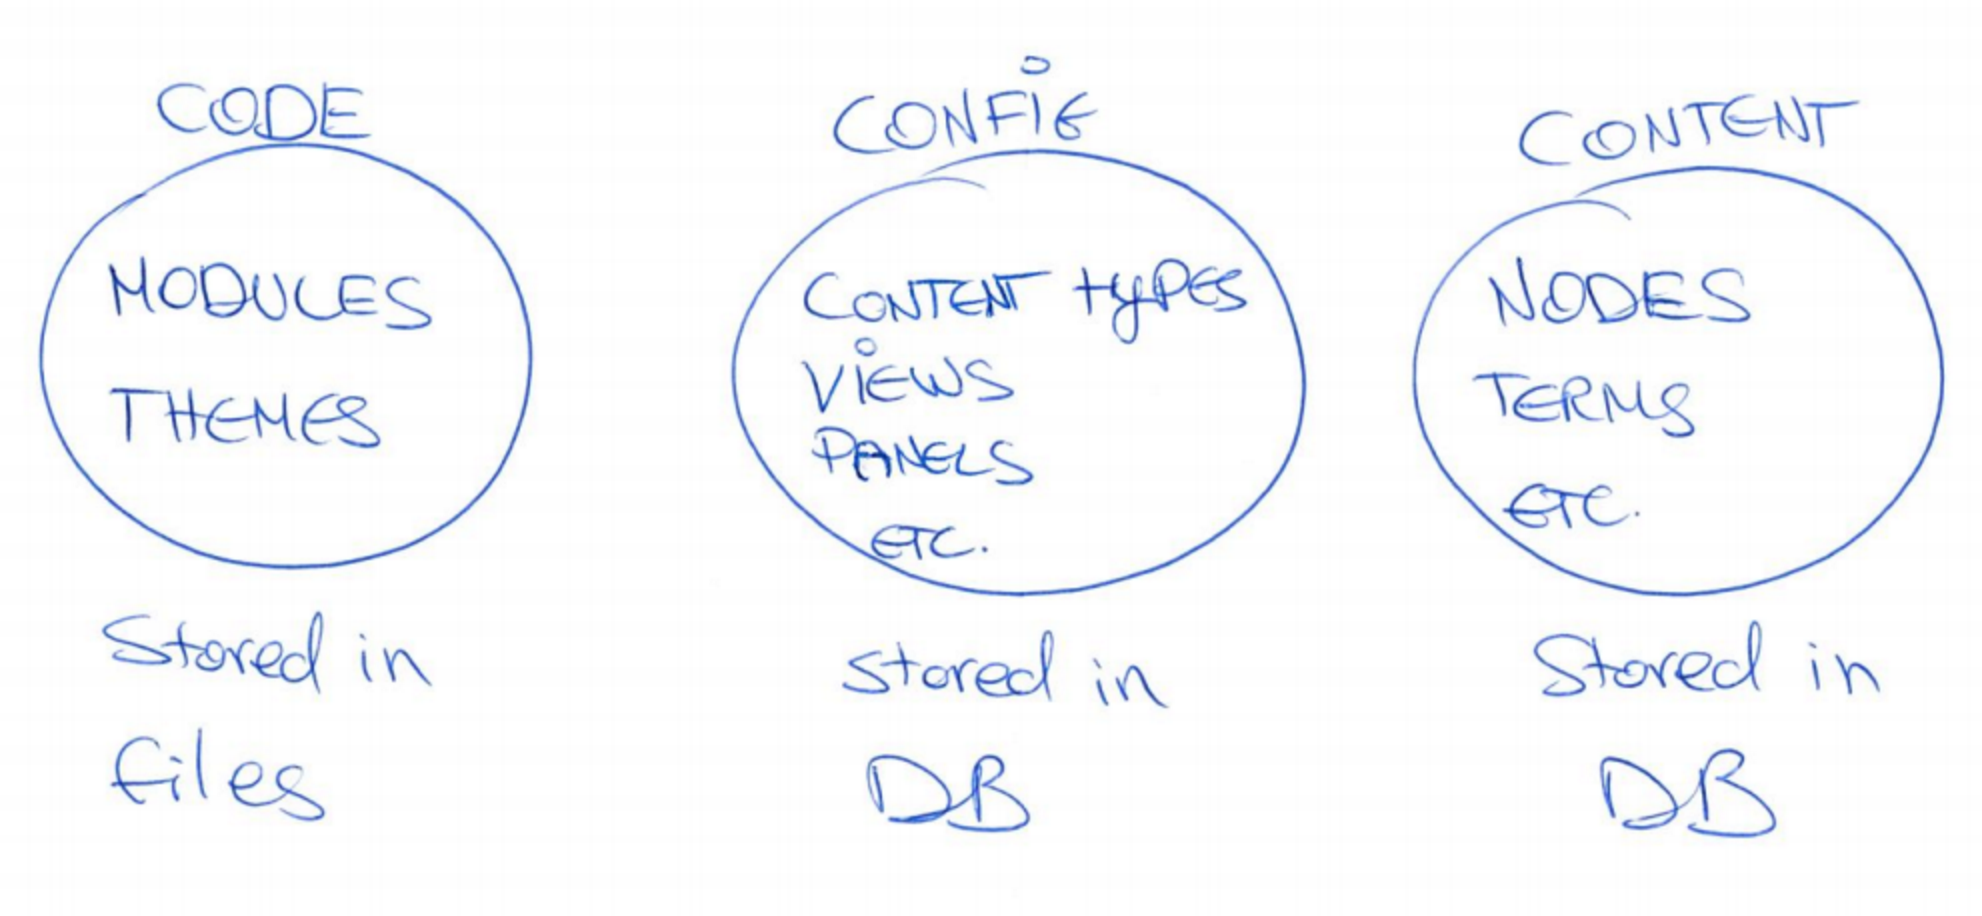 CODE
MODULES
THEMES
Stored in
files
CONFIG
CONTENT TYPES
VIEWS
PANELS
ETC.
Stored in
DB
CONTENT
NODES
TERMS
ETC.
Stored in
DB